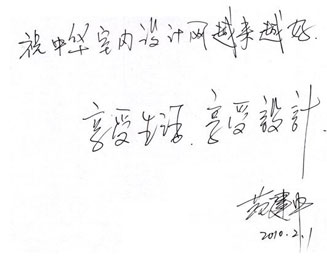 祝中华室内设计网越来越好.
享受生活.享受設計.
范建中
2010.2.1